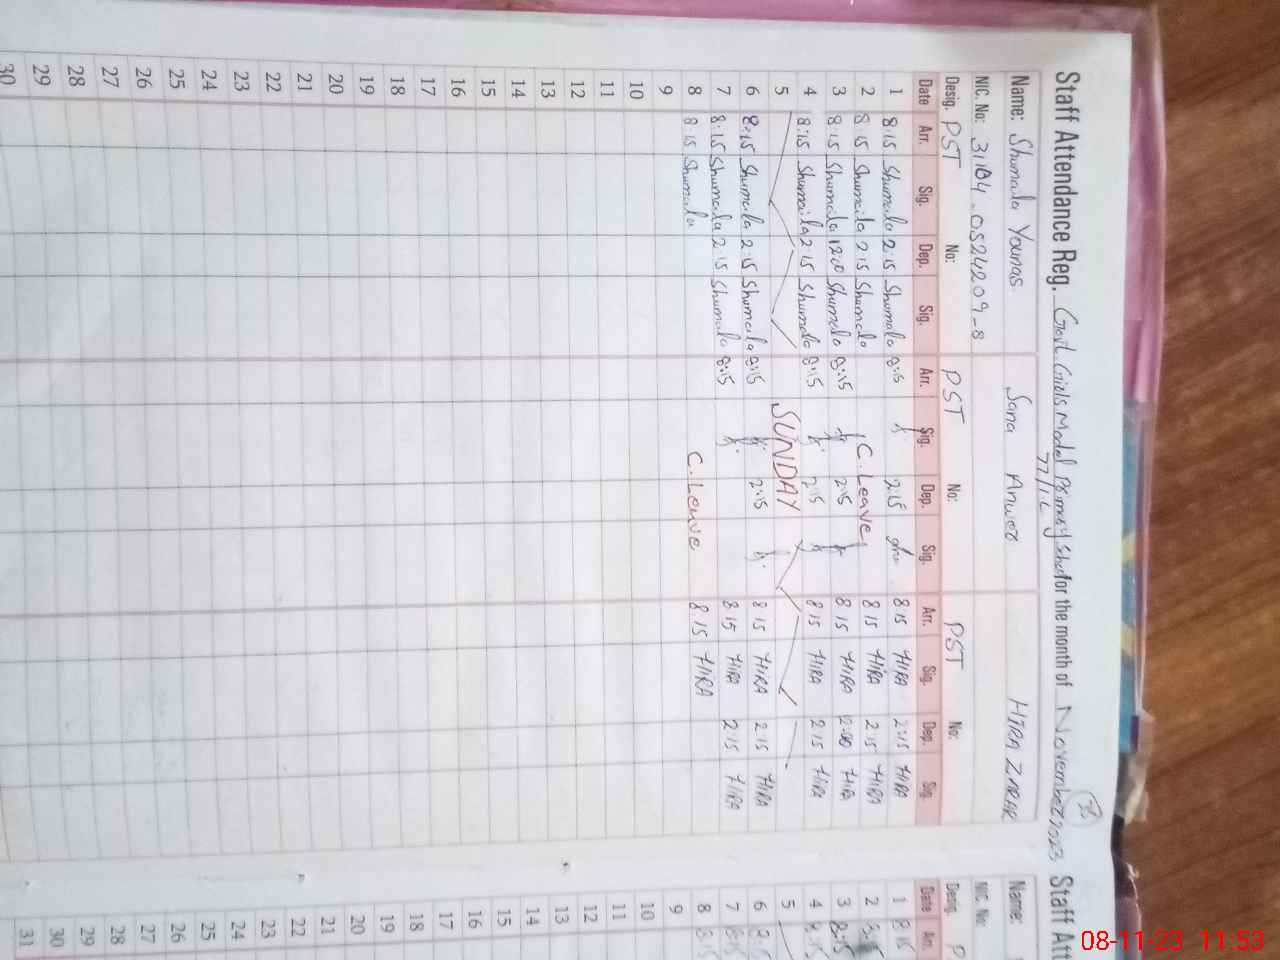 Staff Attendance Reg. Govt. Girls Model Primary for the month of November 2023
77/12
Name: Shumaila Younas Sana Anwer HIRA ZARAR
NIC. No: 31104-0524209-8
Desig. PST No: PST No: PST No:
Date Arr. Sig. Dep. Sig. Arr. Sig. Dep. Sig. Arr. Sig. Dep. Sig.
1 8:15 Shumaila 2:15 Shumaila 8:15 2:15 8 15 HIRA 2:15 HIRA
2 8:15 Shumaila 2:15 Shumaila C. Leave 8 15 HIRA 2:15 HIRA
3 8:15 Shumaila 12:00 Shumaila 8:15 2:15 8 15 HIRA 12:00 HIRA
4 8:15 Shumaila 2:15 Shumaila 8:15 2:15 8 15 HIRA 2:15 HIRA
5 SUNDAY
6 8:15 Shumaila 2:15 Shumaila 8:15 2:15 8 15 HIRA 2:15 HIRA
7 8:15 Shumaila 2:15 Shumaila 8:15 8 15 HIRA 2:15 HIRA
8 8:15 Shumaila C. Leave 8 15 HIRA
9
10
11
12
13
14
15
16
17
18
19
20
21
22
23
24
25
26
27
28
29
30
Staff Att
Name:
NIC. No:
Desig. P
Date Arr.
1 8:15
2 8:15
3 8:15
4 8:15
5
6 8:15
7 8:15
8 8:15
9
10
11
12
13
14
15
16
17
18
19
20
21
22
23
24
25
26
27
28
29
30
31
08-11-23 11:53